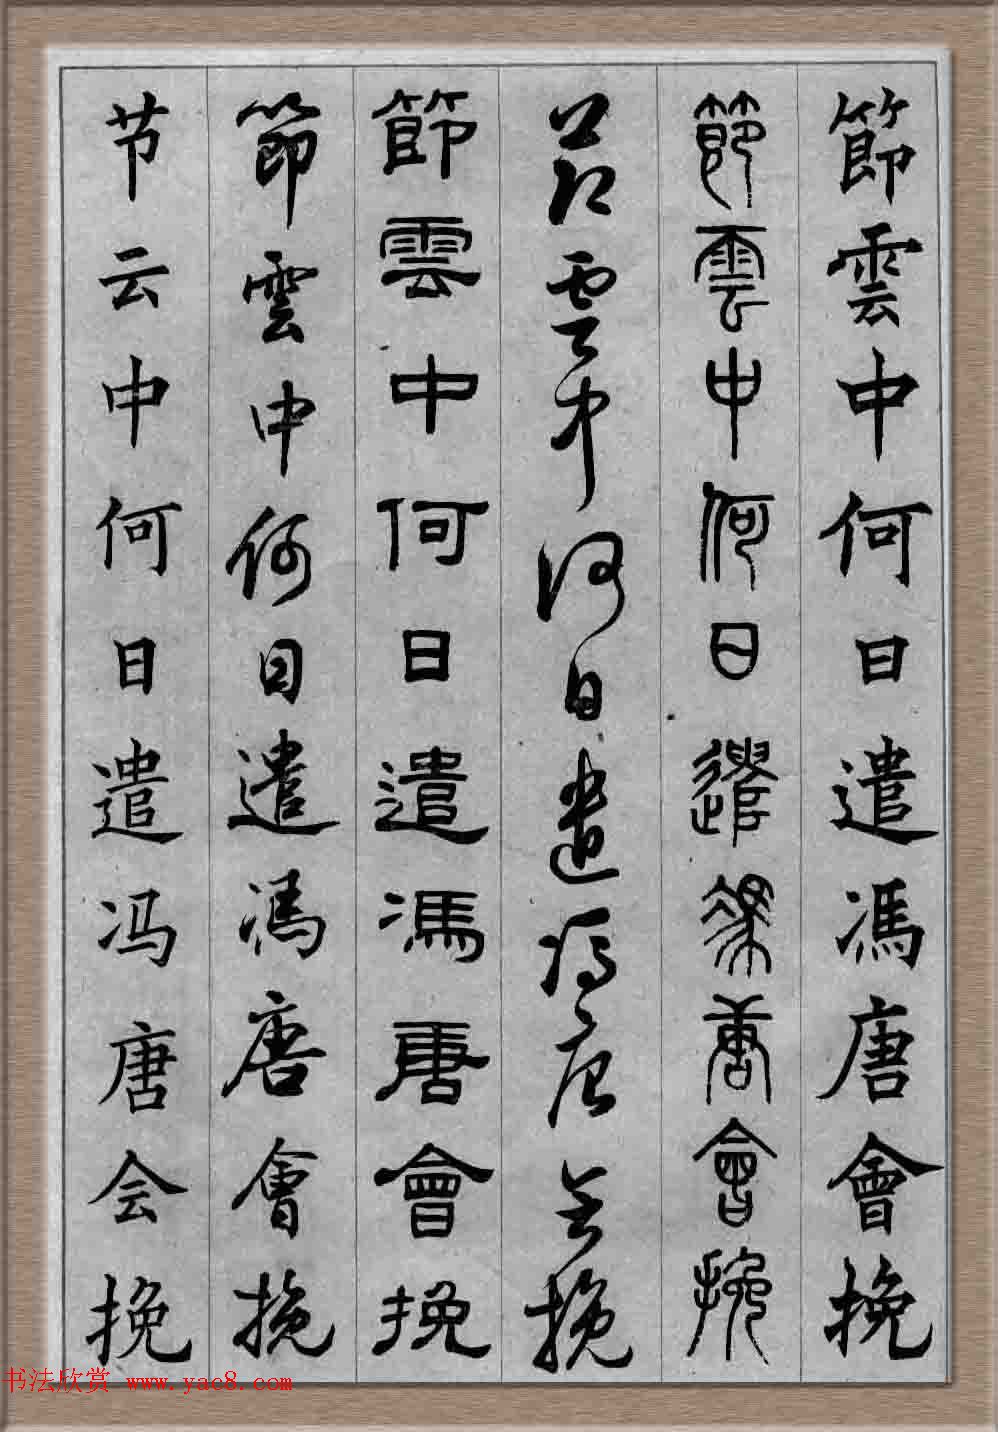 節雲中何日遣馮唐會挽
節雲中何日遣馮唐會挽
節雲中何日遣馮唐會挽
節雲中何日遣馮唐會挽
節雲中何日遣馮唐會挽
节云中何日遣冯唐会挽
书法欣赏 www.yac8.com